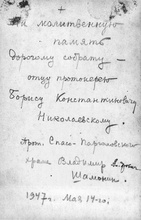 На молитвенную
память
дорогому собрату —
отцу протоиерею
Борису Константиновичу
Николаевскому.
Прот. Спасо-Парголовского
храма Владимир
Шамонин.
1947 г. Мая 14-го.